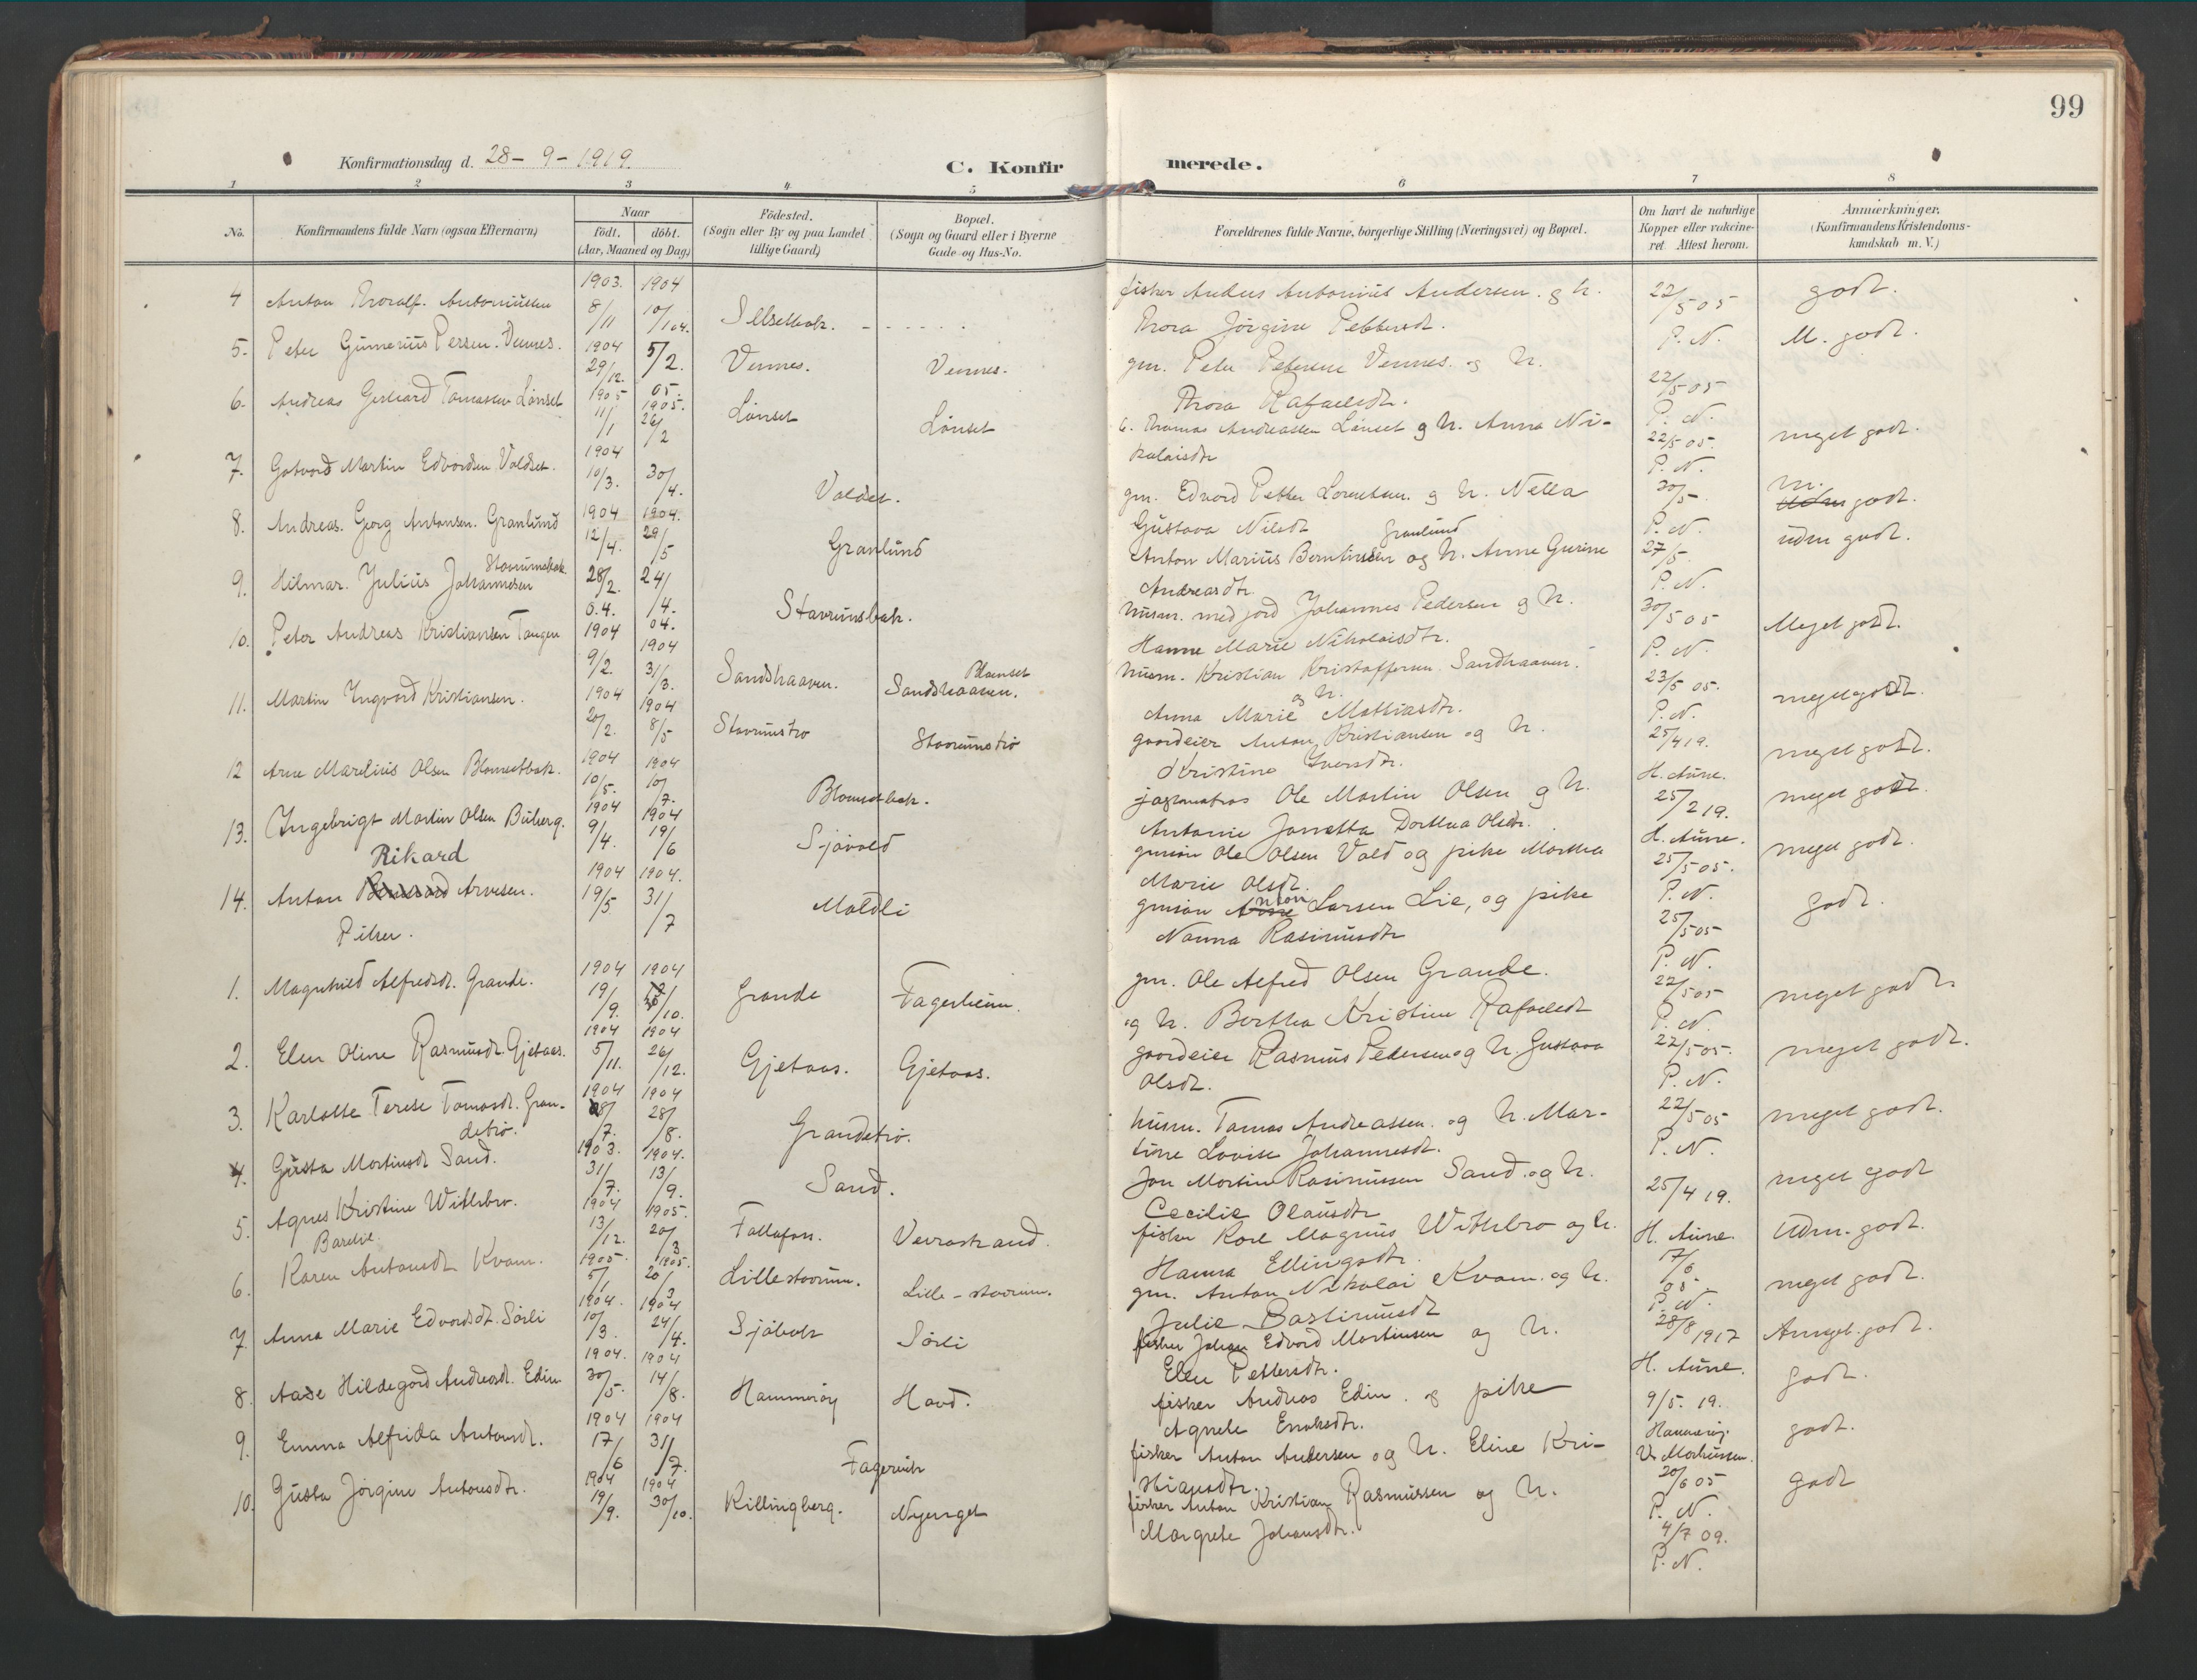 99
Konfirmationsdag d. 28 - 9 - 1919.
C. Konfir merede.
1 2 3 4 5 6 7 8
No.
Konfirmandens fulde Navn (ogsaa Efternavn)
Naar
født. døbt.
(Aar, Maaned og Dag)
Fødested.
(Sogn eller By og paa Landet
tillige Gaard)
Bopæl.
(Sogn og Gaard eller i Byerne
Gade- og Hus-No.
Forældrenes fulde Navne, borgerlige Stilling (Næringsvei) og Bopæl.
Om havt de naturlige
Kopper eller vakcine-
ret. Attest herom.
Anmærkninger.
(Konfirmandens Kristendoms-
kundskab m. V.)
4 Anton Thoralf. Antoniussen 1903. 8/11 1904 10/1 04. fisker Andreas Antonius Andersen. og h. 22/5 05 godt.
Thora Jørgine Pettersdt. P. N.
5. Peter Gumerius Persen. Vennes. 1904 29/12. 5/2. 05. Vennes. Vennes. gm. Peter Petersen Vennes. og h. 22/5 05 M. godt.
Thora Rafaelsdt. P. N.
6. Andreas Gerhard Tomassen Lønset 1905 11/1 1905. 26/2 Lønset Lønset Thomas Andreassen Lønset og h. Anna Ni-
kolaisdtr 22/5 05. P. N. meget godt.
7. Gotvord Martin Edvordsen Voldset. 1904 10/3. 30/4. Voldset. gm. Edvord Petter Lorentsen. og h. Nella
Gustava Nilsdt 30/5 P. N. m. godt.
8. Andreas. Georg Antonsen. Granlund 1904 12/4. 1904. 29/5 Granlund Granlund
Anton Marius Berntinsen og h. Anne Gurine
Andreasdtr. 27/5. P. N. uden godt.
9. Hilmar. Julius Johannesen Stavrumsbak. 28/2. 04. 24/4. 04. Stavrumsbak. husm. med jord Johannes Pedersen og h.
Hanne Marie Nikolaisdtr. 30/5 05 P. N. Meget godt.
10. Peter Andreas Kristiansen Tangen 1904 9/2. 1904 31/3. Sandshaaven. Sandshaaven. husm. Kristian Kristoffersen Sandhaaven.
og h.
Anna Marie Mathiasdtr. 23/5 05. P. N. meget godt.
11. Martin Ingvord Kristiansen. 1904 20/2. 1904 8/5 Stavrumstrø Stavrumstrø gaardeier Anton Kristiansen og h.
Kristine Iversdtr. 25/4 19. H. Aune. meget godt.
12 Arne Marelius Olsen Blomsetbak. 1904 10/5. 1904 10/7. Blomsetbak. Ole Martin Olsen og h.
Antonie Jonetta Dorthea Olsdtr. 25/2 19. H. Aune. meget godt.
13. Ingebrigt Martin Olsen Buberg. 1904 9/4. 1904 19/6 Sjøvold Ole Olsen Vold og pike Martha
Marie Olsdt. 25/5 05. P. N. meget godt.
14. Anton Rikard Arnesen. 1904 19/5 1904. 31/7 Moldli Anton Larsen Lie, og pike
Nanna Rasmusdtr 25/5 05 P. N. godt.
Piker.
1. Magnhild Alfredsdt. Grande. 1904 19/9. 1904 /10. Grande Fagerheim. gm. Ole Alfred Olsen Grande.
og h. Berthea Kristine Rafaelsdt 22/5 05 P. N. meget godt.
2. Elen Oline Rasmusdt. Gjetaas. 1904 5/11. 1904 26/12. Gjetaas. Gjetaas. gaardeier Rasmus Pedersen og h. Gustava
Olsdt. 22/5 05. P. N. meget godt.
3. Karlotte Terese Tomasdt. Gran-
detrø. 1904 28/7. 1904 28/8. Grandetrø. husm. Tomas Andreassen. og h. Mar-
tine Lovise Johannesdt. 22/5 05 P. N. meget godt.
4. Gusta Mortinsdt Sand. 1903. 31/7. 1904. 13/9. Sand. Jon Mortin Rasmussen Sand. og h.
Cecilie Olausdtr 25/4 19. H. Aune. meget godt
5. Agnes Kristine Withbro. 1904 13/12. 1905. 20/3 Veirastrand. fisker Karl Magnus Withbro og h.
Hanna Ellingsdtr. 17/6 05 P. N. Uden. godt.
6. Karen Antonsdt Kvam. 1905. 5/1 1905. 20/3 Lillestavrum. Lille-stavrum. gm. Anton Nikolai Kvam. og h.
Julie Bastimusdt 28/8 1917 H. Aune. meget godt.
7. Anna Marie Edvordsdt. Sørli 1904. 10/3. 1904 24/4. Sjøbak Sørli fisker Johan Edvord Mortinsen og h.
Elen Pettersdtr. godt.
8. Aase Hildegard Andreasdt. Edin 1904. 30/5. 1904 14/8. Hammerøy Hovd. fisker Andreas Edin. og pike
Agnete Enoksdtr. 9/5. 19. Hammerøy. godt.
9. Emma Alfrida Antonsdt. 1904 17/6 1904 31/7. Fagervik fisker Anton Andersen og h. Eline Kri-
stiansdtr. 20/6 05 P. N. godt.
10. Gusta Jørgine Antonsdtr. 1904 19/9. 1904 30/10. Killingberg. Nyenget fisker Anton Kristian Rasmussen og h.
Margrete Johansdtr. 4/7 09. P. N. godt